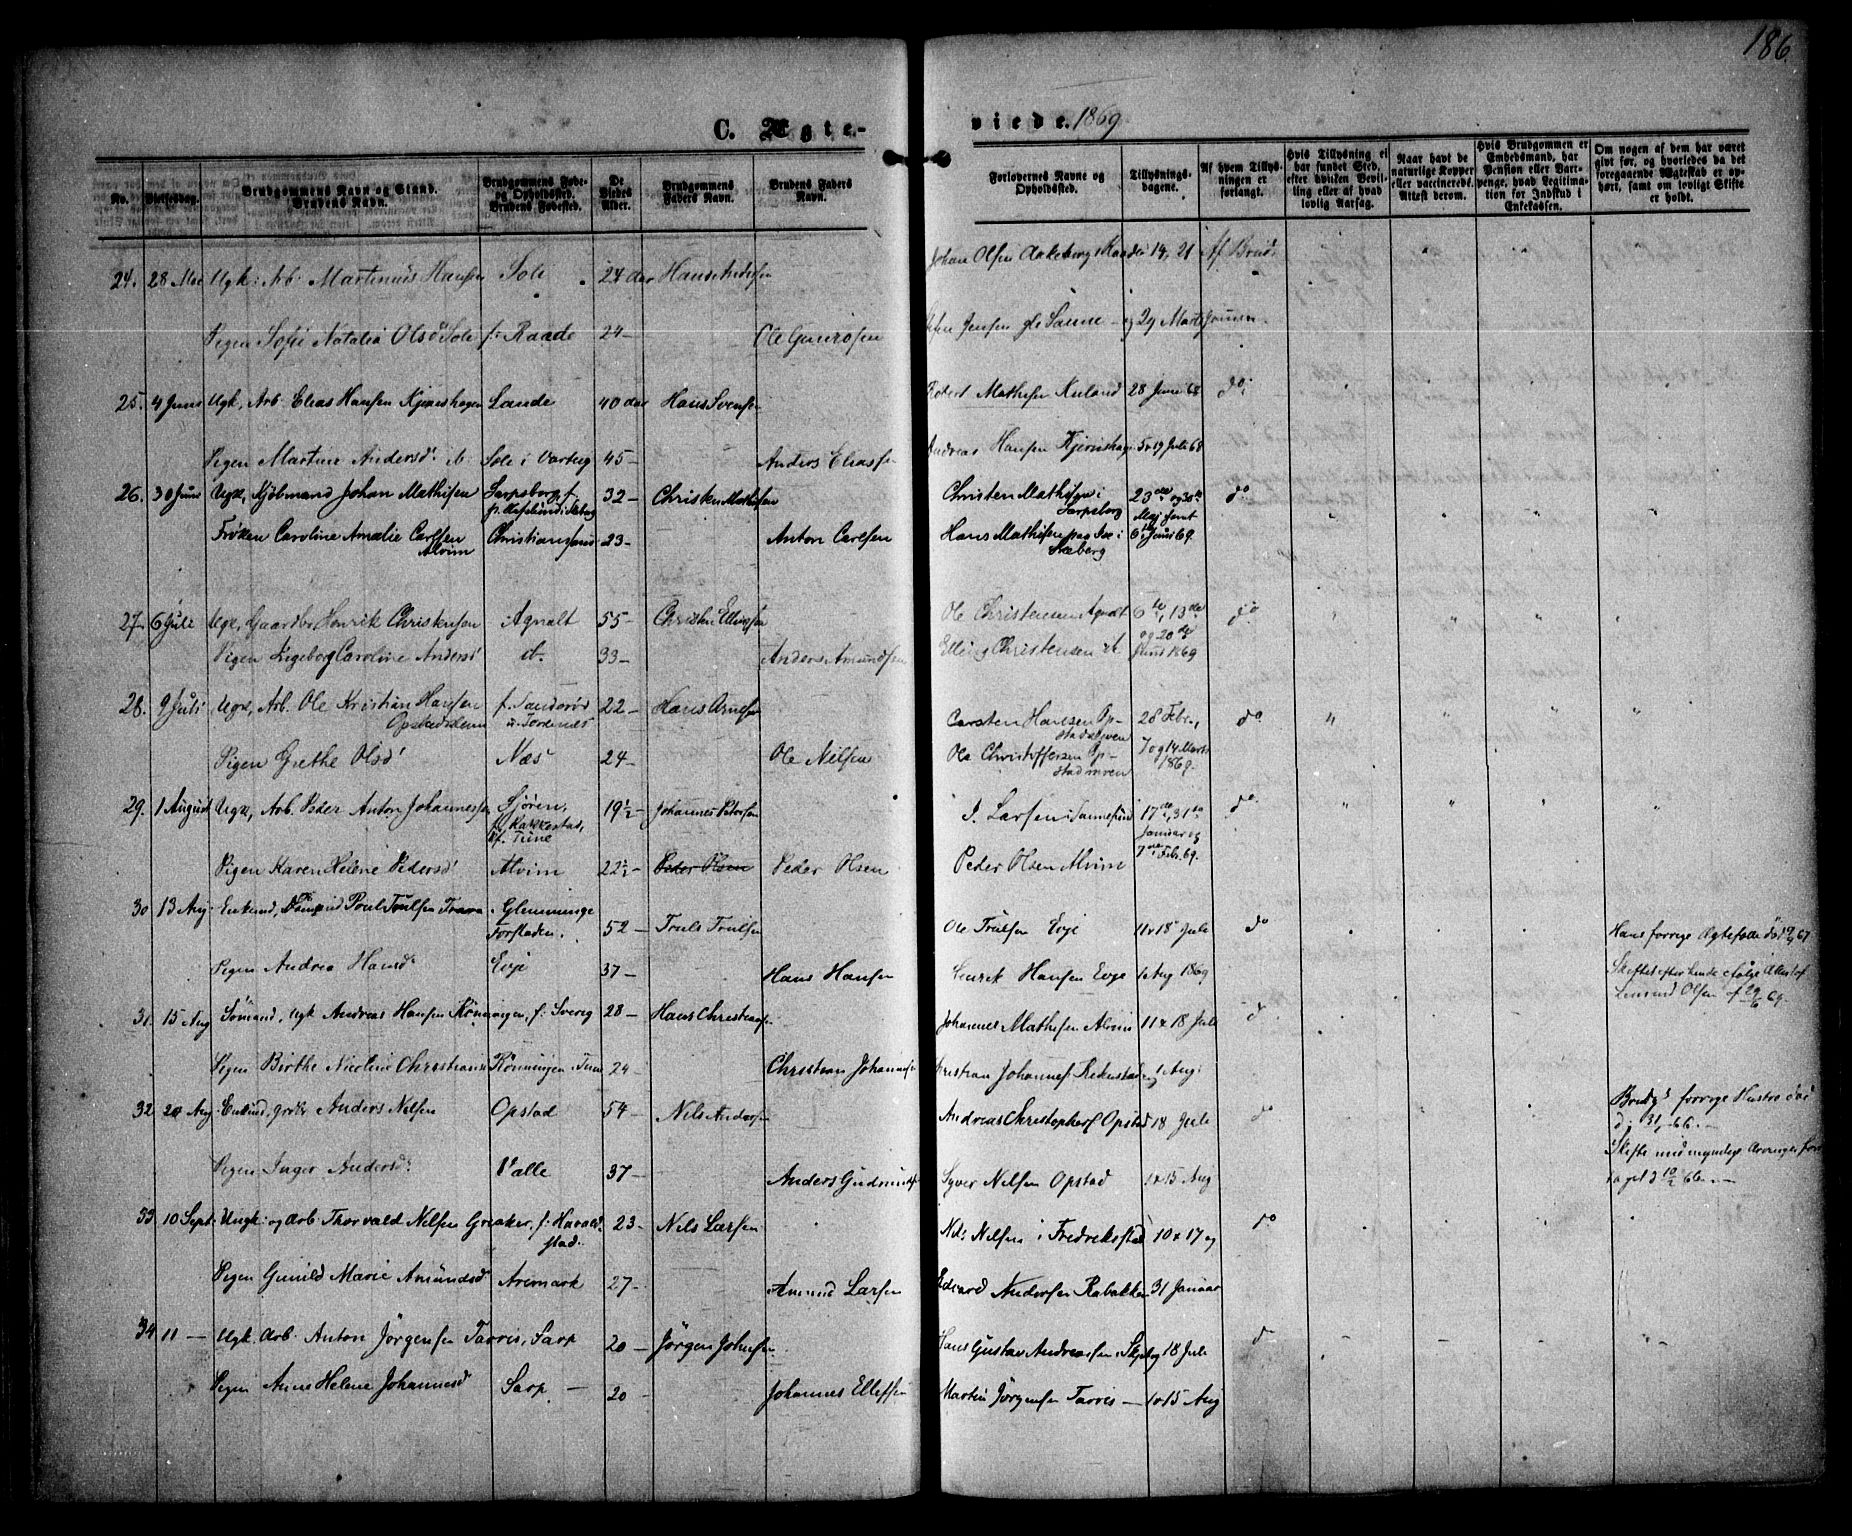 186.
C. Ægte-
viede. 1869
No.
Vielsesdag.
Brudgommens Navn og Stand.
Brudens Navn.
Brudgommens Føde-
og Opholdssted.
Brudens Fødested.
De
Viedes
Alder.
Brudgommens
Faders Navn.
Brudens Faders
Navn.
Forlovernes Navne og
Opholdssted.
Tillysnings-
dagene.
Af hvem Tillys-
ningen er
forlangt.
Hvis Tillysning ei
har fundet Sted,
efter hvilken Bevil-
ling eller af hvad
lovlig Aarsag.
Naar havt de
naturlige Kopper
eller vaccinerede.
Attest derom.
Hvis Brudgommen er
Embedsmand, har
Pension eller Var-
penge, hvad Legitima-
tion for Indskud i
Enkekassen.
Om nogen af dem har været
gift før, og hvorledes da det
foregaaende Ægteskab er op-
hørt, samt om lovligt Skifte
er holdt.
24. 28 Mai Ugk: Arb: Martinus Hansen Sole 24 aar Hans Andersen Johan Olsen Aakeberg i Raade 14, 21 Af Brud-
Pigen Sofie Natalia Olsd Sole f: Raade 24 — Ole Gunerosen Jensen Sanne — og 29 Marts gommen.
25. 4 Juni Ugk, Arb: Elias Hansen Kjernshagen Sande 40 aar Hans Svensen Robert Mathisen Kuland 28 Juni 68 do
Pigen Martine Andersd: Sole i Varteig 45 — Anders Eliassen Andreas Hansen Kjernshagen 5 & 19 Juli 68
26. 30 Juni Ugk, Kjöbmand Johan Mathisen Sarpsborg f. 32 — Christen Mathisen Christen Mathisen i Sarpsborg 23de og 30te Maj samt do
Fröken Caroline Amalie Carlsen Alvim Christiansand 23 — Anton Carlsen Hans Mathisen paa Ise i Skeberg 6te Juni 69.
27. 6 Juli Ugk, Gaardbr Henrik Christensen Agnalt 55 — Christen Ellingsen Ole Christensen Agnalt 6te, 13de og 20de do
Pigen Ingeborg Caroline Andersd d. 33 — Anders Amundsen Elling Christensen Juni 1869
28. 9 Juli Ugk, Arb. Ole Kristian Hansen Opstadskem f. Sanderöd i Torsnæs 22 — Hans Arnesen Carsten Hansen Opstadskeven 28 Febr., do
Pigen Grethe Olsd Næs 24 — Ole Nilsen Ole Christoffersen Opstad 7 og 14 Marts 1869.
29. 1 August Ugk, Arb. Peder Anton Johannessen Sjören, f. Rakkestad, kf. Tune 19½ Johannes Petersen J. Larsen i Sannesund 17de, 31te Januar og do
Pigen Karen Helene Pedersd Alvim 22½ Peder Olsen Peder Olsen Peder Olsen Alvim 7de Feb. 69.
30 13 Aug Enkemd, Poul Trulsen Glemminge Forstaden. 52 — Truls Trulsen Ole Trulsen Evje 11 & 18 Juli do Hans forrige Ægtefælle död 67
Pigen Andrea Hansd Evje 37 — Hans Hansen Henrik Hansen Evje 1 Aug 1869 Skiftet efter hende ifölge Attest af
Lensmd Olsen 29/6 69.
31. 15 Aug Sömand, Ugk Andreas Hansen Rönningen, f: Sverig 28 — Hans Christiansen Johannes Mathisen Alvim 11 & 18 Juli do
Pigen Birthe Nicoline Christiansd Rönningen i Tune 24 — Christian Johannesen Kristian Johannes Rekustad og 1 Aug:
32. 20 Aug Enkmd, grbr Anders Nilsen Opstad 54 — Nils Andersen Andreas Christophers Opstad 18 Juli do Brudg's forrige Hustru död
d. 31/ 66. —
Pigen Inger Andersd: Valle 37 — Anders Gudmunds Syver Nilsen Opstad 1 & 15 Aug Skifte med myndige Arvinger fore-
taget 3 66. —
33 10 Sept: Ungk: og Arb: Thorvald Nilsen Greaker, f: Haraldstad. 23 — Nils Larsen Nils Nilsen i Fredrikstad 10 & 17 og do
Pigen Gunild Marie Amundsd Aremark 27 — Amund Larsen Edvard Andersen Rabakken 31 Januar
34 11 — Ugk. Arb: Anton Jörgensen Tarris, Sarp 20 — Jörgen Johnsen Hans Gustav Andreassen i Skj og 18 Juli do
Pigen Anne Helene Johannesd Sarp — 20 — Johannes Ellefsen Martin Jörgensen Tarris — 1 & 15 Aug